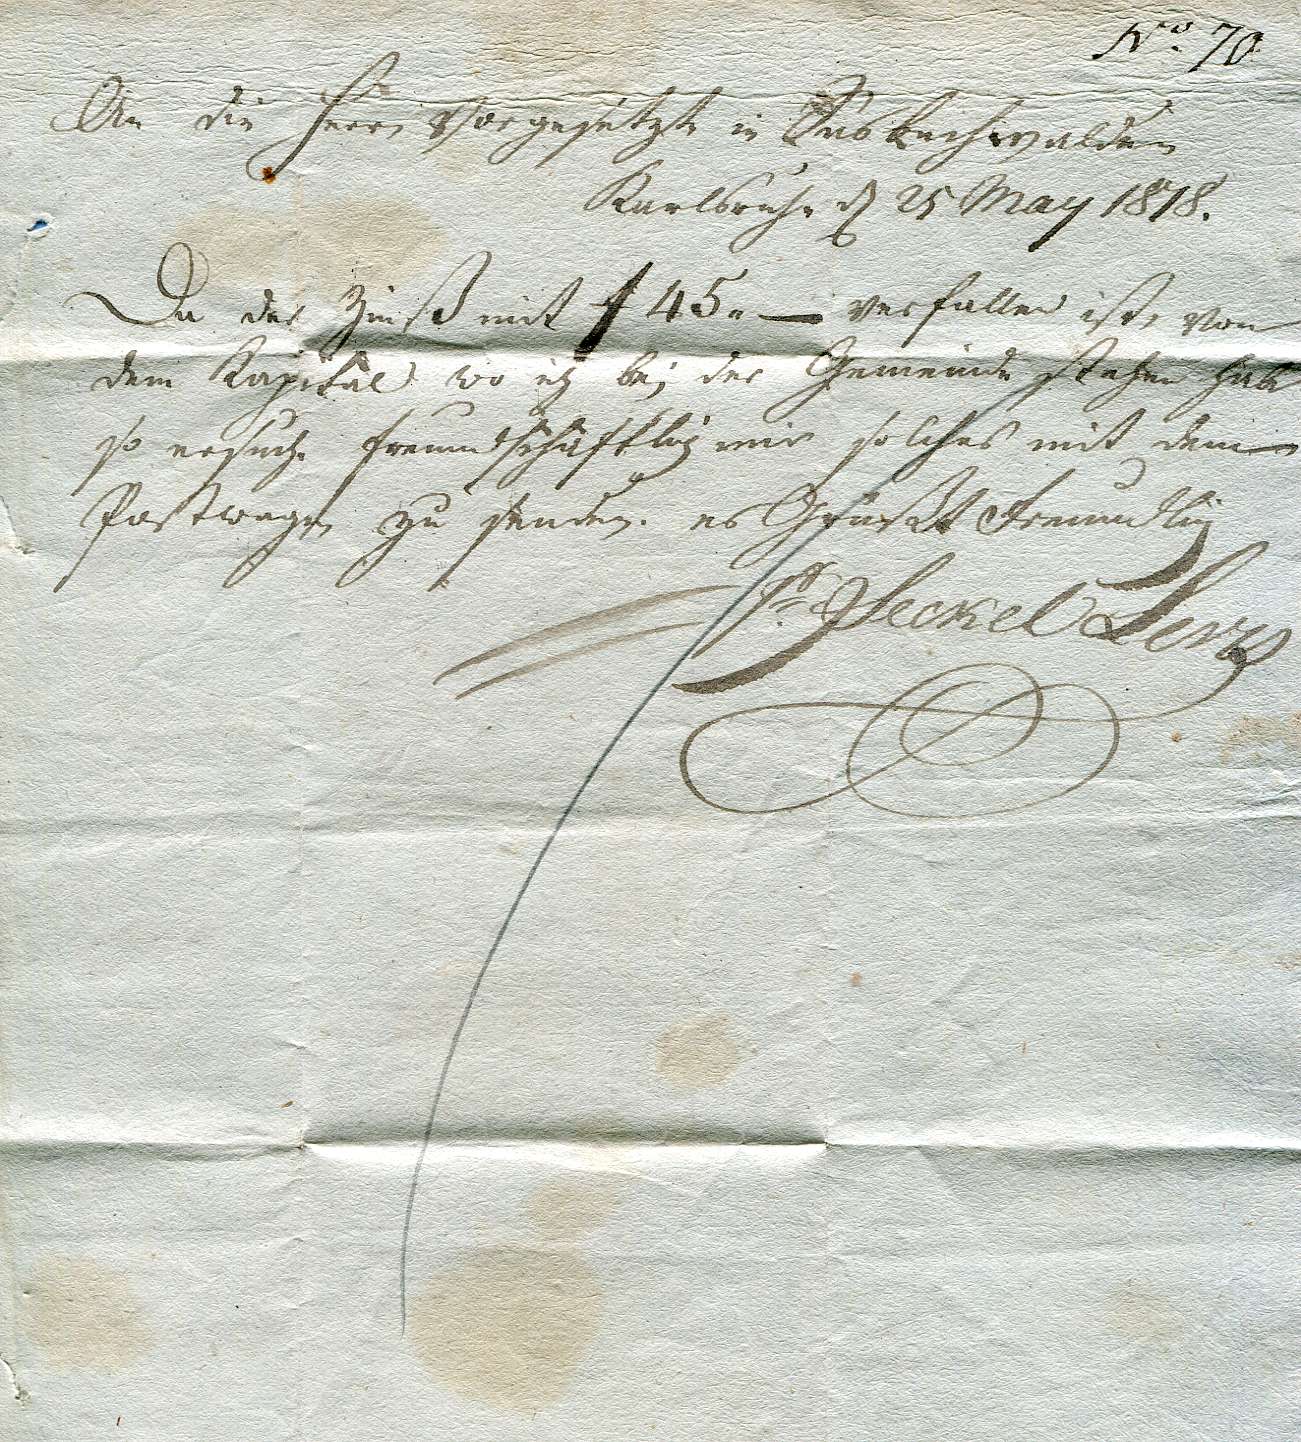 No. 70
An die Herrn Vorgesetzte in Sasbachwalden
Karlsruhe d 25 May 1818.
Da der Zinß mit f 45.— verfallen ist, von
dem Kapital wo ich bei der Gemeinde stehen habe
so ersuche freundschaftlich mir solches mit dem
Postwagen zu senden. es Grüßt Freundlich
Seckel Levy